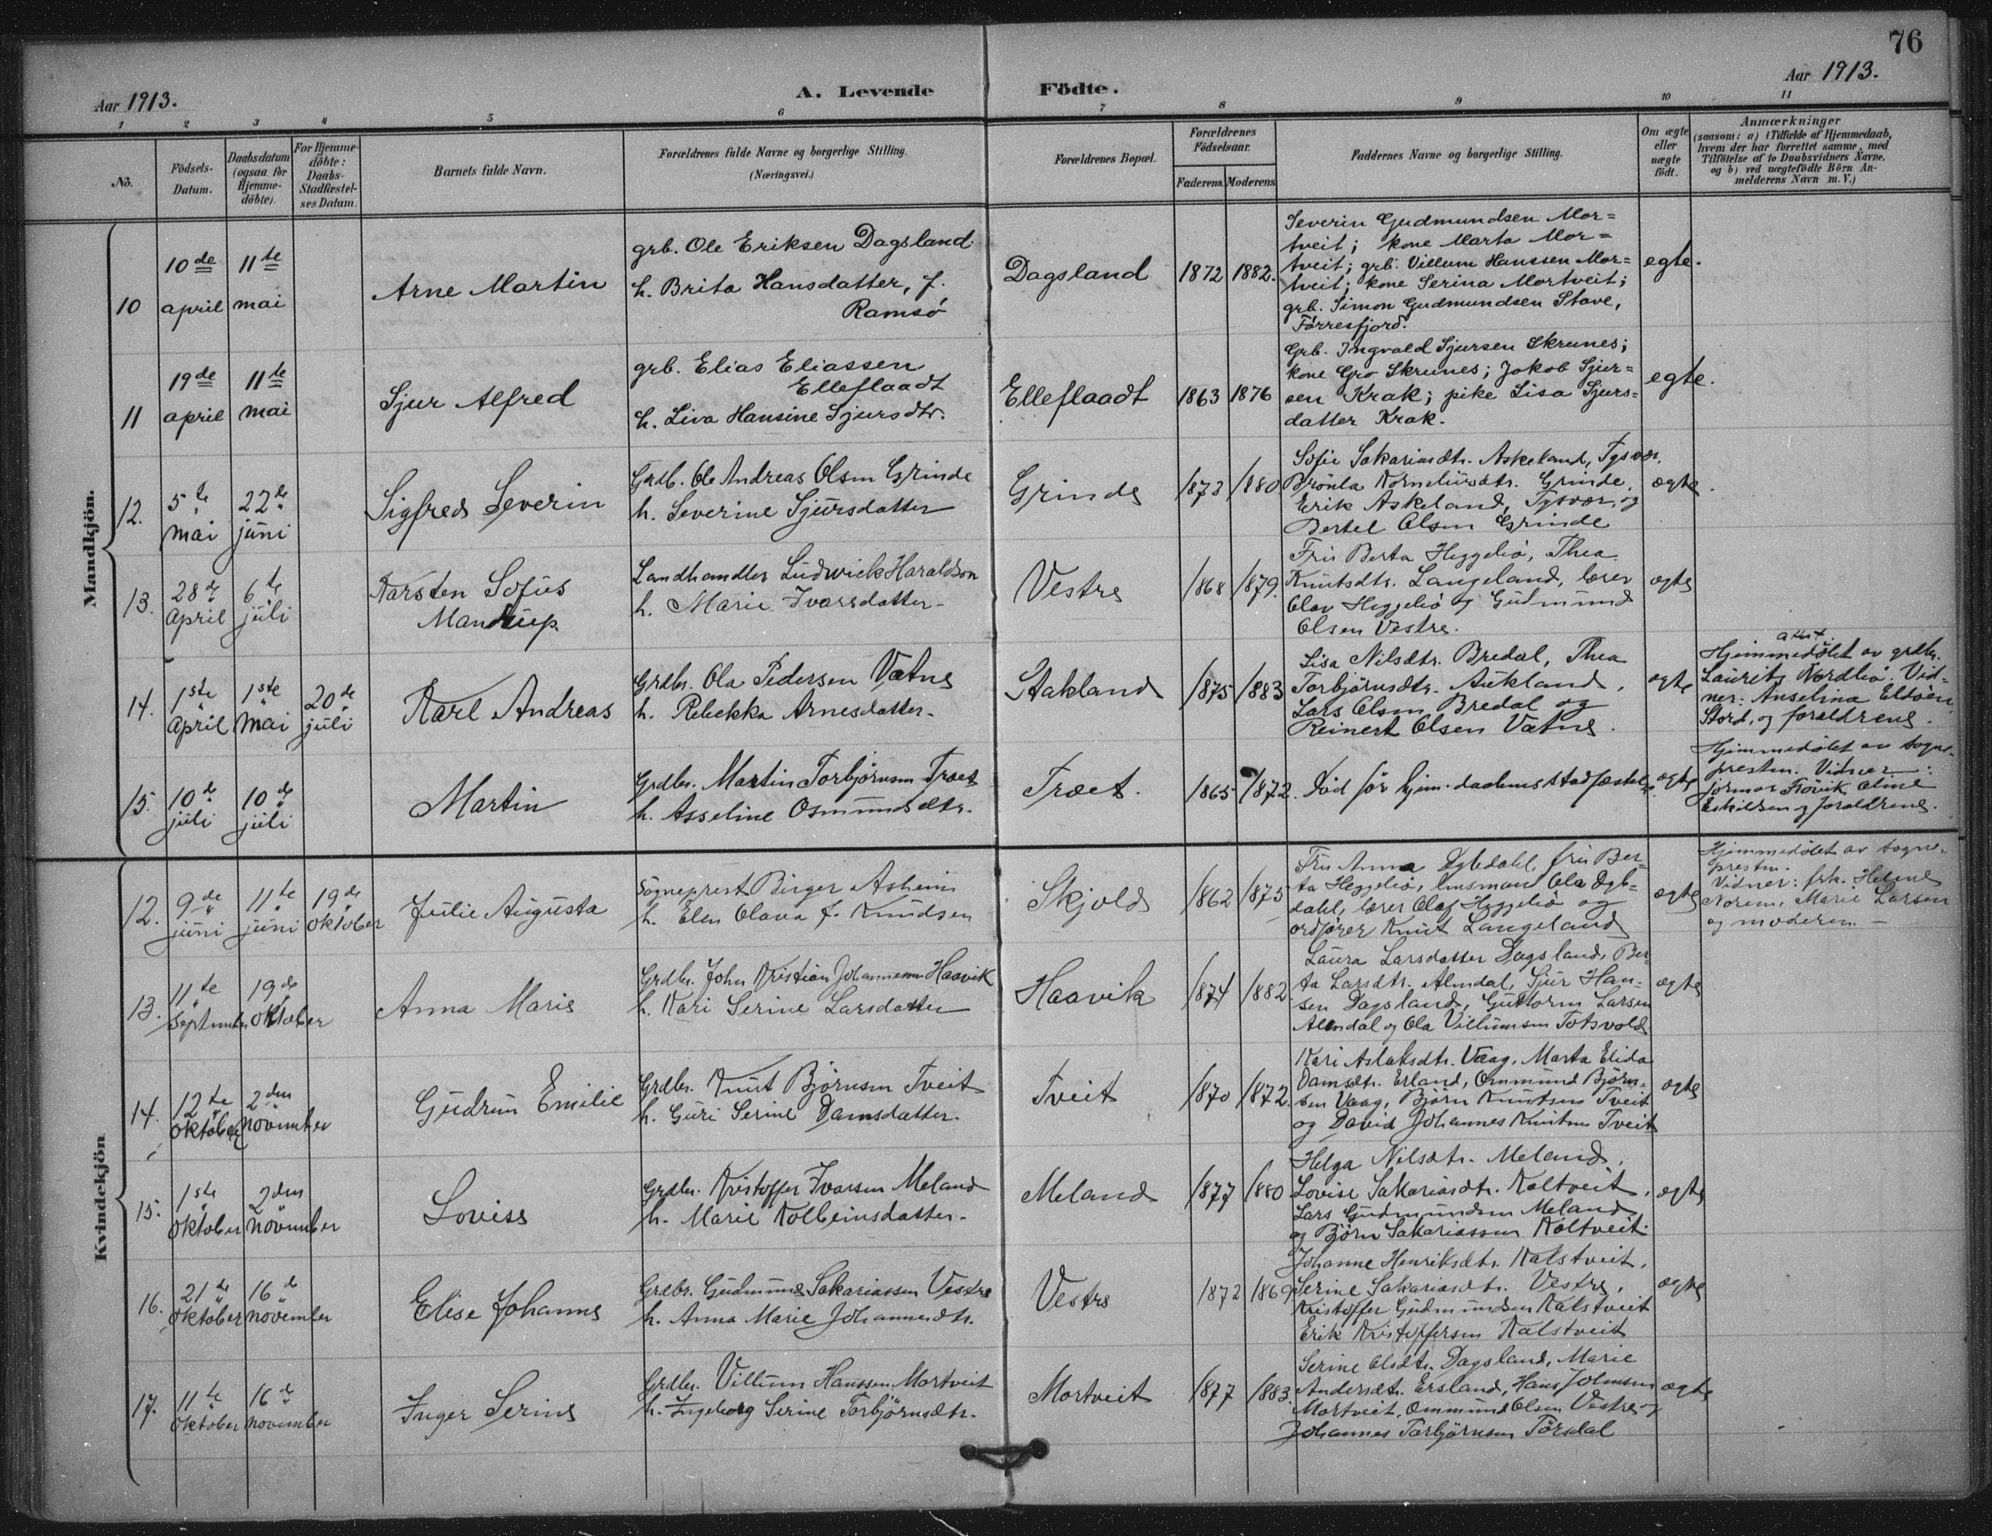 76
Aar 1913.
A. Levende Födte.
Aar 1913.
1 2 3 4 5 6 7 8 9 10 11
No.
Födsels-
Datum.
Daabsdatum
(ogsaa for
Hjemme-
döbte).
For Hjemme-
döbte:
Daabs-
Stadfæstel-
ses Datum.
Barnets fulde Navn.
Forældrenes fulde Navne og borgerlige Stilling.
(Næringsvei.)
Forældrenes Bopæl.
Forældrenes
Födselsaar.
Faderens. Moderens.
Faddernes Navne og borgerlige Stilling.
Om ægte
eller
uægte
födt.
Anmærkninger
(saasom: a) i Tilfælde af Hjemmedaab,
hvem der har forrettet samme, med
Tilföielse af to Daabsvidners Navne,
og b) ved uægtefödte Börn An-
melderens Navn m. V.)
Mandkjön.
10
10de
april
11te
mai
Arne Martin
grb. Ole Eriksen Dagsland
h. Brita Hansdatter, f.
Ramsö
Dagsland
1872 1882.
Severin Gudmundsen Mor=
tveit; kone Marta Mor=
tveit; grb. Villum Hanssen Mor=
tveit; kone Serina Mortveit;
grb. Simon Gudmundsen Stave,
Förresfjord.
egte.
11
19de
april
11te
mai
Sjur Alfred
grb. Elias Eliassen
Elleflaadt
h. Liva Hansine Sjursdtr.
Elleflaadt
1863 1876
Grb. Ingvald Sjursen Skrunes;
kone Gro Skrunes; Jakob Sjur=
sen Krak; pike Lisa Sjurs-
datter Krak.
egte.
12.
5te
mai
22de
juni
Sigfred Severin
Grdb. Ole Andreas Olsen Grinde
h. Severine Sjursdatter
Grinde
1873 1880
Sofie Sakariasdtr. Askeland, Tysvær,
Brönla Korneliusdtr. Grinde,
Erik Askeland, Tysvær, og
Bertel Olsen Grinde
ægte.
13.
28de
April
6te
juli
Karsten Sofus
Mandrup
Landhandler Ludvick Haraldson
h. Marie Ivarsdatter.
Vestre
1868 1879.
Fru Berta Heggeliö, Thea
Knutsdtr. Langeland, lærer
Olav Heggeliö og Gudmund
Olsen Vestre.
ægte
14.
1ste
April
1ste
Mai
20de
juli
Karl Andreas
Grdbr. Ola Pedersen Vatne
h. Rebekka Arnesdatter.
Stakland
1875 1883
Lisa Nilsdtr. Bredal, Thea
Torbjörnsdtr. Aukland,
Lars Olsen Bredal og
Reinert Olsen Vatne.
ægte
Hjemmedöbt av grdbr.
Laurits Nordliö. Vid-
ner: Anselina Eltöen,
Stord, og forældrene.
15.
10de
juli
10de
juli
Martin
Grdbr. Martin Torbjörnsen Træet
h. Asseline Osmundsdtr.
Træet.
1865 1872.
Död för hjem. daabens stadfæstelse.
ægte
Hjemmedöbt av sogne-
presten. Vidner:
jormor Törvik, Oline
Eskildsen og forældrene.
Kvindekjön
12.
9de
juni
11te
juni
19de
oktober
Julie Augusta
Sogneprest Birger Asheim
h. Elen Olava f. Knudsen
Skjold
1862 1875
Fru Anna Dybdahl, fru Ber-
ta Heggeliö, lensmand Ola Dyb-
dahl, lærer Olaf Heggeliö og
ordförer Knut Langeland
ægte
Hjemmedöbt av sogne-
presten.
Vidner: frk. Helene
Norem, Marie Larsen
og moderen.
13.
11te
September
19de
oktober
Anna Marie
Grdbr. John Kristian Johannesen Haavik
h. Kari Serine Larsdatter
Haavik
1874 1882
Laura Larsdatter Dagsland, Ber-
ta Larsdtr. Alendal, Sjur Han-
sen Dagsland, Guttorm Larsen
Alendal og Ola Villumsen Totsvold
ægte
14.
12te
oktober
2den
november
Gudrun Emilie
Grdbr. Knut Björnsen Tveit
h. Guri Serine Damsdatter.
Tveit
1870 1872.
Kari Aslaksdtr. Vaag, Marta Elida
Damsdtr. Erland, Ommund Björn-
sen Vaag, Björn Knutsen Tveit
og David Johannes Knutsen Tveit
ægte
15.
1ste
oktober
2den
november
Lovise
Grdbr. Kristoffer Ivarsen Meland
h. Marie Kolbeinsdatter.
Meland
1877 1880
Helga Nilsdtr. Meland,
Lovise Sakariasdtr. Koltveit,
Lars Gudmundsen Meland
og Björn Sakariassen Koltveit.
ægte
16.
21de
oktober
16de
november
Elise Johanne
Grdbr. Gudmund Sakariassen Vestre
h. Anna Marie Johannesdtr.
Vestre
1872 1869
Johanne Henriksdtr. Kalstveit,
Serine Sakariasdtr. Vestre,
Kristoffer Gudmundsen Kalstveit
Erik Kristoffersen Kalstveit
ægte
17.
11te
oktober
16de
november
Inger Serine
Grdbr. Villum Hanssen Mortveit
h. Ingeborg Serine Torbjörnsdtr.
Mortveit
1877 1883.
Serine Olsdtr. Dagsland, Marie
Andersdtr. Ersland, Hans Johnsen
Mortveit, Ommund Olsen Vestre og
Johannes Torbjörnsen Törsdal
ægte